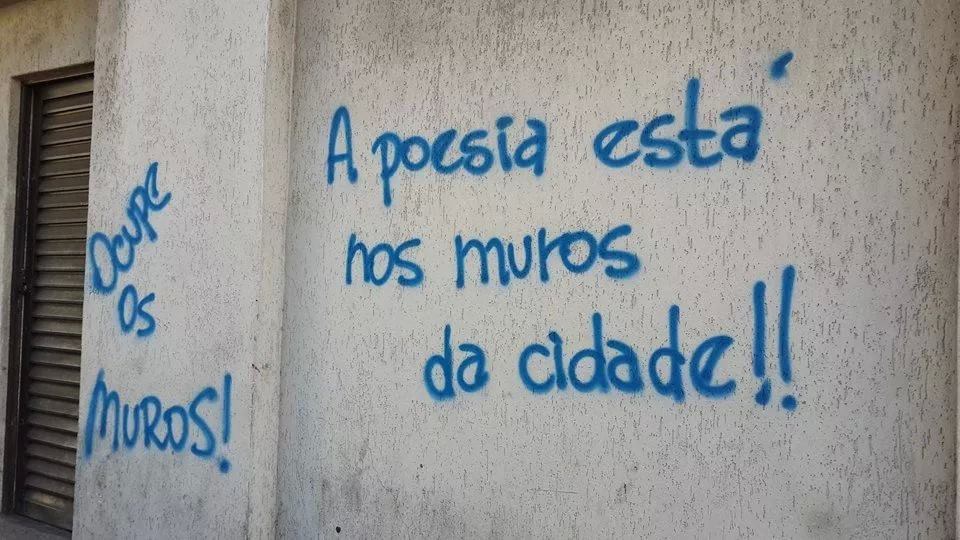 OCUPE
OS
MUROS!
A poesia está
nos muros
da cidade!!